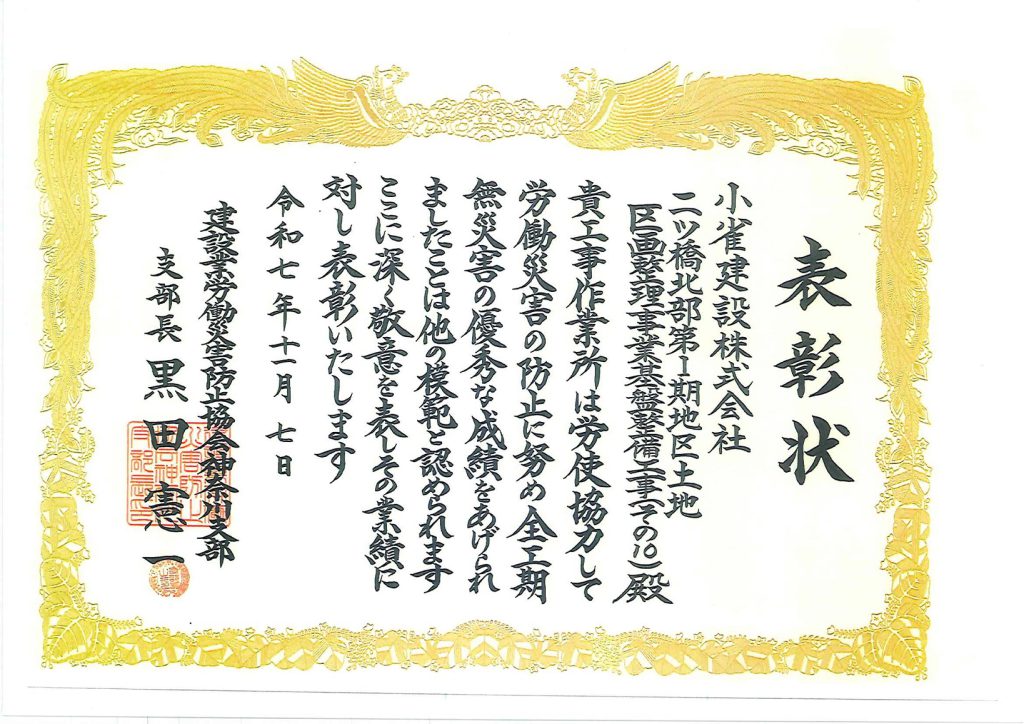 表彰状
小雀建設株式会社
二ツ橋北部第Ⅰ期地区土地
区画整理事業基盤整備工事(その10)殿
貴工事作業所は労使協力して
労働災害の防止に努め全工期
無災害の優秀な成績をあげられ
ましたことは他の模範と認められます
ここに深く敬意を表しその業績に
対し表彰いたします
令和七年十一月七日
建設業労働災害防止協会神奈川支部
支部長 黒田憲一